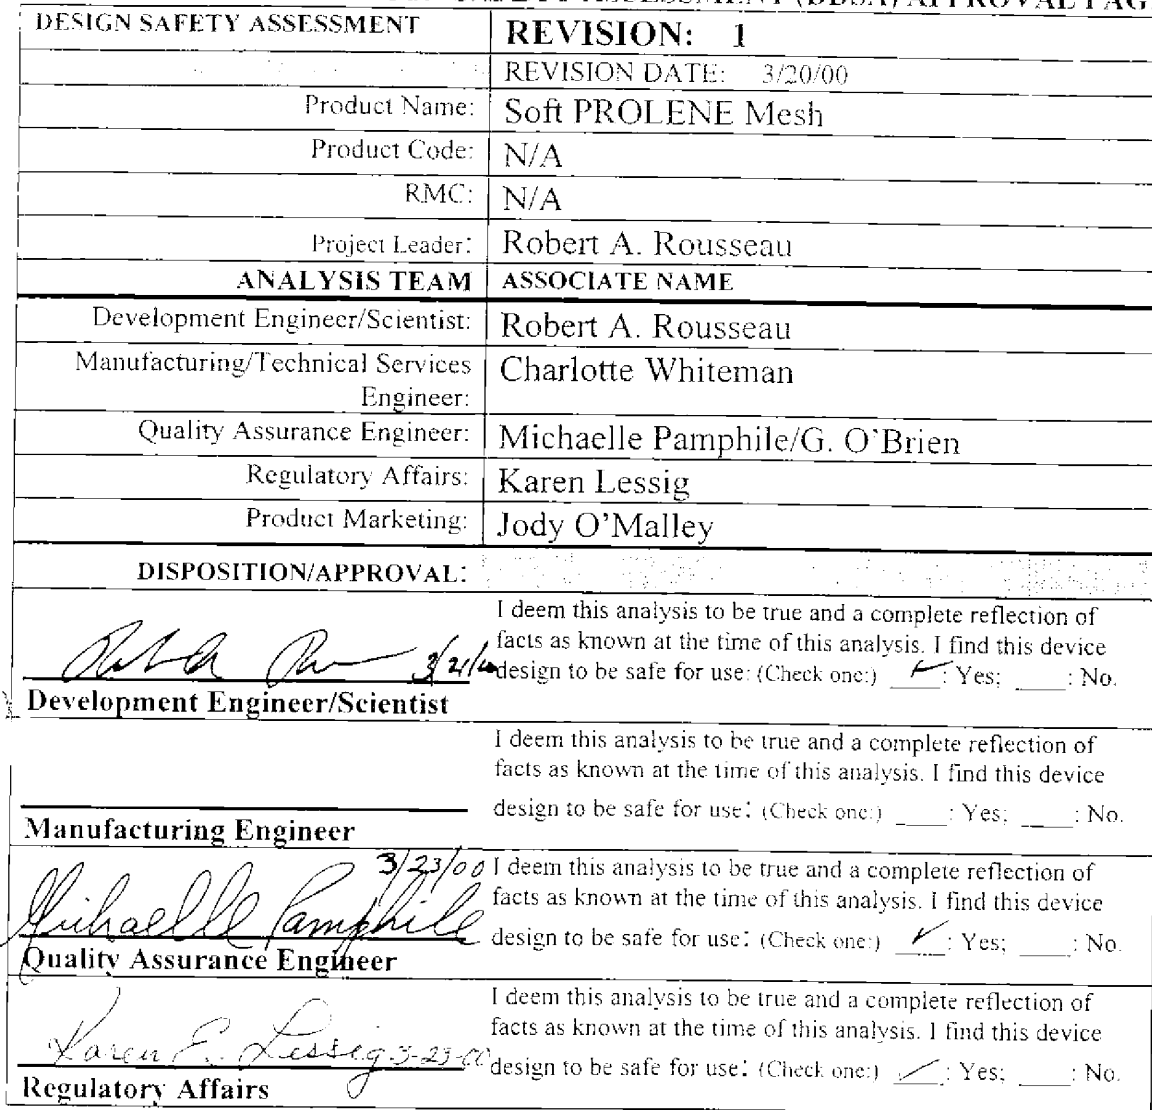 ASSESSMENT (DDSA) APPROVAL PAGE
DESIGN SAFETY ASSESSMENT REVISION: 1
REVISION DATE: 3/20/00
Product Name: Soft PROLENE Mesh
Product Code: N/A
RMC: N/A
Project Leader: Robert A. Rousseau
ANALYSIS TEAM ASSOCIATE NAME
Development Engineer/Scientist: Robert A. Rousseau
Manufacturing/Technical Services Charlotte Whiteman
Engineer:
Quality Assurance Engineer: Michaelle Pamphile/G. O'Brien
Regulatory Affairs: Karen Lessig
Product Marketing: Jody O'Malley
DISPOSITION/APPROVAL:
I deem this analysis to be true and a complete reflection of
facts as known at the time of this analysis. I find this device
3/21/00 design to be safe for use: (Check one:) ✓: Yes; ____: No.
Development Engineer/Scientist
I deem this analysis to be true and a complete reflection of
facts as known at the time of this analysis. I find this device
design to be safe for use: (Check one:) ____: Yes; ____: No.
Manufacturing Engineer
3/23/00 I deem this analysis to be true and a complete reflection of
facts as known at the time of this analysis. I find this device
Michaelle Pamphile design to be safe for use: (Check one:) ✓: Yes; ____: No.
Quality Assurance Engineer
I deem this analysis to be true and a complete reflection of
facts as known at the time of this analysis. I find this device
Karen E. Lessig 3-23-00 design to be safe for use: (Check one:) ✓: Yes; ____: No.
Regulatory Affairs